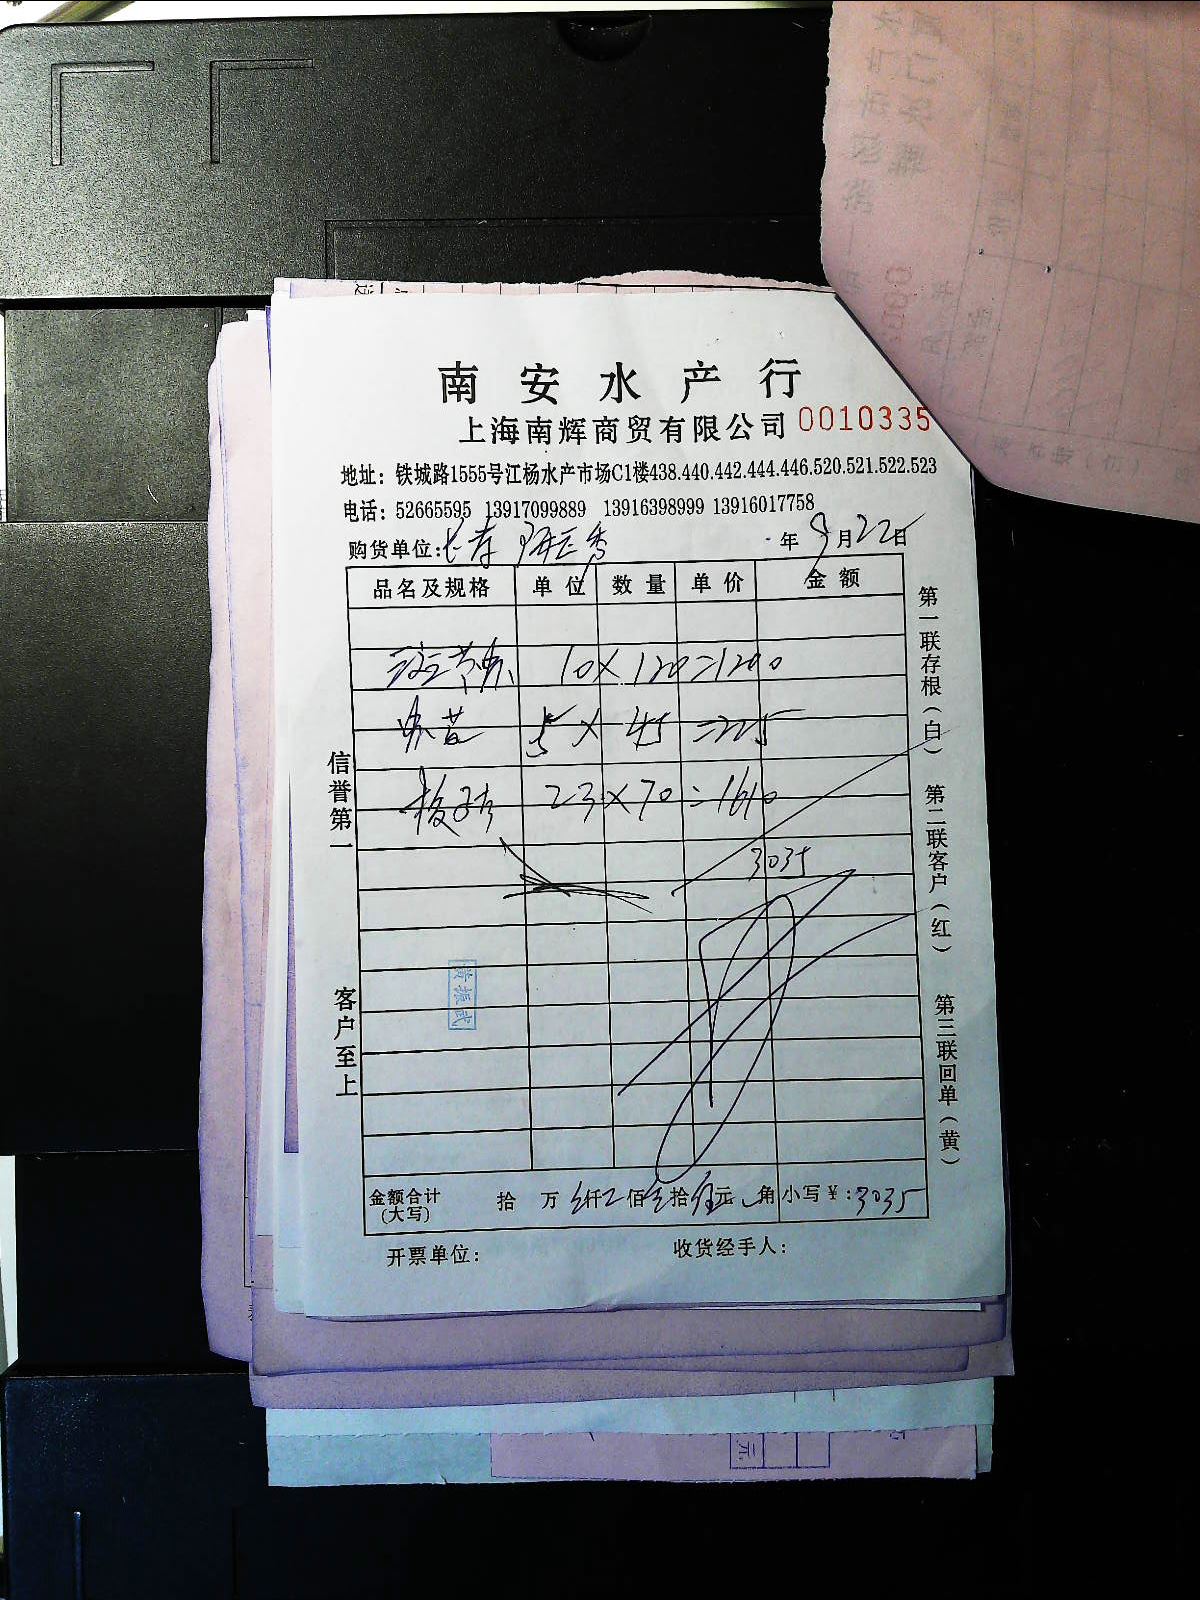 南安水产行
上海南辉商贸有限公司 0010335
地址：铁城路1555号江杨水产市场C1楼438.440.442.444.446.520.521.522.523
电话：52665595 13917099889 13916398999 13916017758
购货单位: 年9月22日
品名及规格 单位 数量 单价 金额
斑节虾 10×120=1200
5×45=225
23×70=1610
3035
金额合计(大写) 拾 万 仟 佰 拾 元 角 小写￥:3035
开票单位: 收货经手人:
信誉第一
客户至上
第一联存根(白)
第二联客户(红)
第三联回单(黄)
黄振武